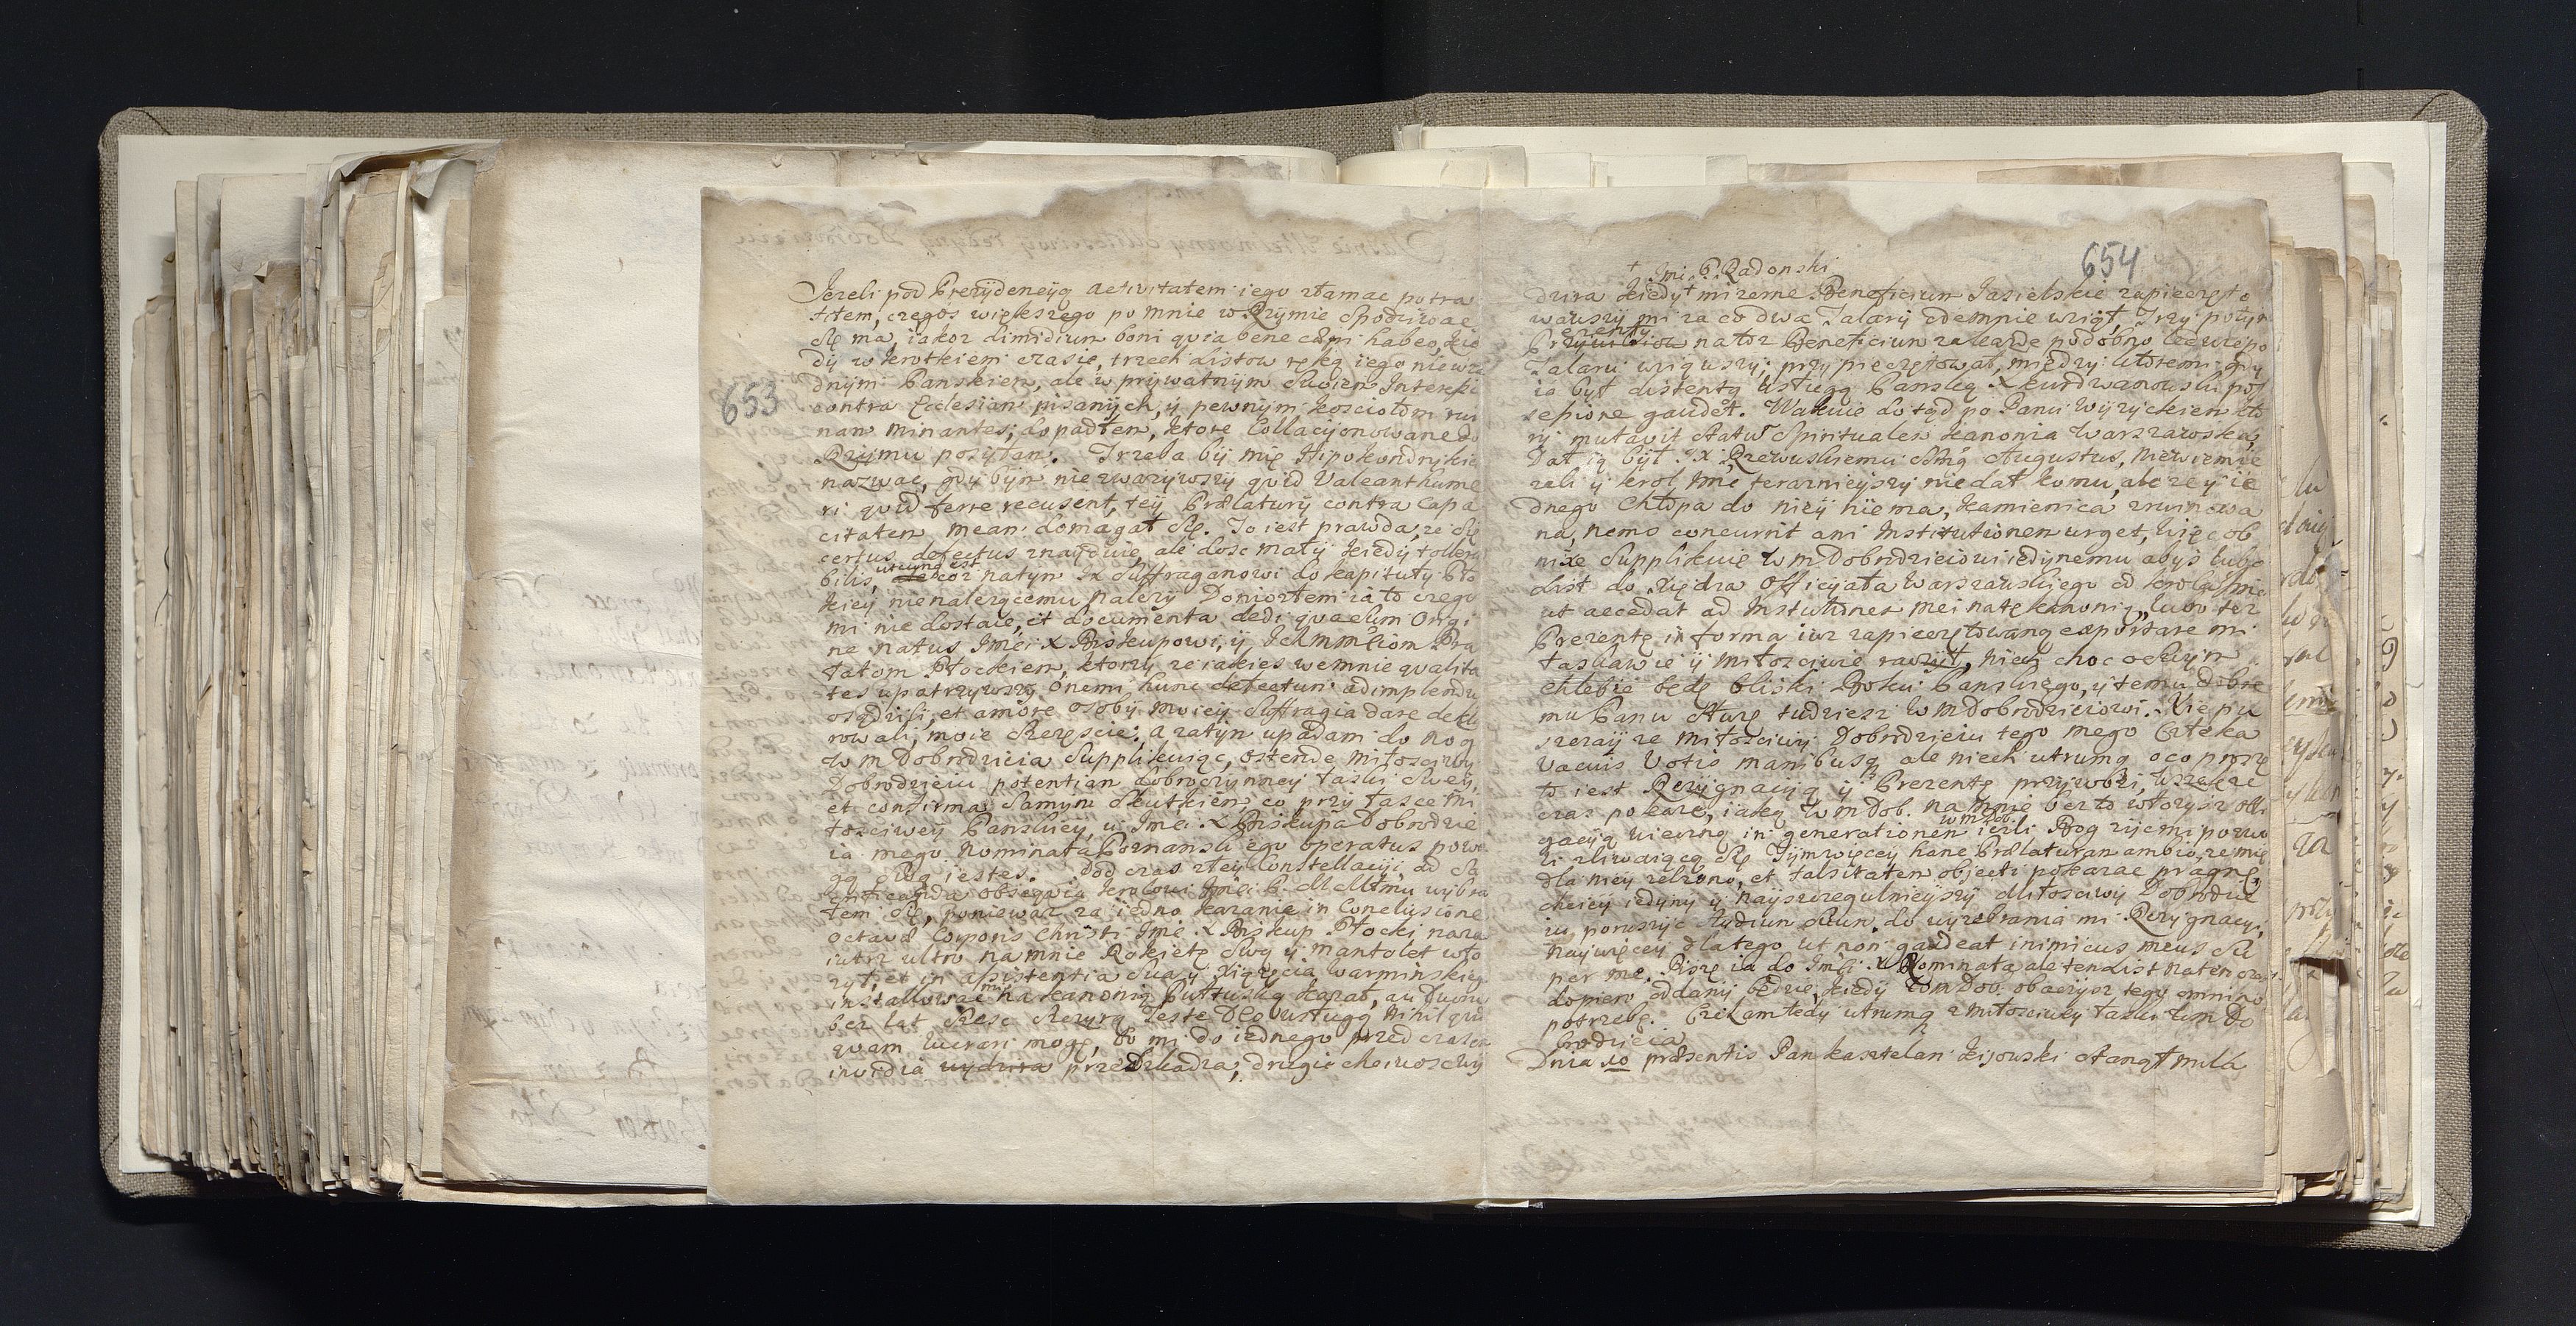 653
Jezeli pod Prezydencyą activitatem iego złamac potra
fiłem, czegos większego po mnie w Rzymie spodziwac
się ma, iakoz dimidium boni quia bene cæpi habeo, kie
dy w krotkiem czasie, trzech listow ręką iego niewzę
dnym Panskiem, ale w prywatnym swoiem Interesie
contra Ecclesiam pisanych, y pewnym kosciołom rui
nam minantes, dopadłem, ktore Collacyonowane do
Rzymu posyłam. Trzeba by mię Hipokondrykie
nazwac, gdy bym nie zwazywszy quid Valeant hume
ri quid ferre recusent, tey Prælatury contra capa
citatem meam domagał się. To iest prawda, ze się
certus defectus znayduie, ale dosc mały kiedy tollera
bilis, natym JX Suffraganowi do kapituły Pło
kiey nienalezącemu nalezy Doniozłem ia to czego
mi nie dostaie, et documenta dedi quælum Origi
ne natus Jmci X Biskupowi, y Ichmmciom Præ
łatom Płockiem, ktorzy ze iakies wemnie qualita
tes upatrzywszy onemi hunc defectum adimplendū
osądzili, et amore osoby moiey suffragia dare dekla
rowali, moie szczęscie. a zatym upadam do nog
W m Dobrodzieia Supplikuiąc, ostende miłosciwy
Dobrodzieiu potentiam dobroczynney łaski swey,
et confirma samym skutkiem, co przy łasce mi
łosciwey Panskiey, u Jmci X Biskupa Dobrodzie
ia mego Nominata Poznanskiego operatus powa
gą swą iestes. Pod czas z tey Constellacyi, ad sa
crificanda obsequia krolowi Jmci P. M Młmu wybra
łem się, poniewaz za iedno kazanie in Conclusione
octavæ Corporis Christi Jmc X Biskup Płocki naza
iutrz ultro na mnie Rokietę swą y mantolet wło
zył, et in assistentia sua y Xiązęcia Warminskiego
installowac mię na kanonią Pułtuską kazał, au
bez lat szesc szczyrą usługą nihil quid
quam lucrari mogę, bo mi do iednego przed czasem
invidia wydziera przeszkadza, drugie chciwosc wy
654
+ Jmi P. Radonski
dziera kiedy + mizerne Beneficium Jasielskie zapieczęto
wawszy mi za co dwa Talary odemnie wziął, Trzy potym
Prezenty natoz Beneficium za kazde podobno tez we po
Talaru wziąwszy, przypieczętował, między ktoremi gdy
ia był distentą usługą Panską X kurdwanowski pos
sesione gaudet. Wakuie dotąd po Panu Wyzyckiem kto
ry mutavit statū Spiritualem kanonia Warszawska,
Dał ią był JX Rzewuskiemu Smę Augustus, niewiem ie
zeli y krol Jmc terazniejszy nie dał komu, ale ze y ie
dnego chłopa do niey niema, kamienica zruinowa
na, nemo concurrit ani Institutionem urget, więc ob
nixe Supplikuię W m Dobrodzieiowi iedynemu abys lubo
list do Xiędza Officyała Warszawskiego od krola Jmci
ut accedat ad Institutionem mei natę kanonią, lubo tez
Prezentę in forma iuz zapieczętowaną exportare mi
łaskawie y miłosciwie raczył, niech choc oschym
chlebie będę bliski Boku Panskiego, y temu Dobre
mu Panu słuzę tudziesz W m Dobrodzieiowi. Nie pu
szczay ze miłosciwy Dobrodzieiu tego mego Człeka
vacuis Votis manibusq, ale niech utrumq oco proszę
to iest Rezygnacyą y Prezentę przywozi, wszakze
czas pokaze, iaką W m Dob. na mnie berło włozysz obli
gacyą wieczną in generationem W m Dob. iezli Bog zyie mi pozwo
li zliwaiącą się Tymwięcey hanc Prælaturam ambio, ze mię
dla niey zelzono, et falsitatem objecti pokazac pragnę,
chciey iedyny y nayszczegulnieyszy Miłosciwy Dobrodzie
iu poruszyc studium suum, do wyrobienia mi Rezygnacyi,
naywięcey dlatego ut non gaudeat inimicus meus su
per me. Piszę ia do Jmci X Nominata, ale ten list naten czas
dopiero oddany będzie, kiedy W m Dob. obaczysz tego omnino
potrzebę. Czekam tedy utrumq z miłosciwey łaski W m Do
brodzieia
Dnia 10 præsentis Pan kasztelan kijowski stanął mila